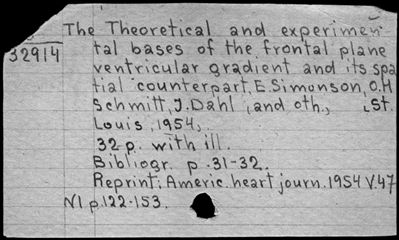 The Theoretical and experimen-
tal bases of the frontal plane
32914
ventricular gradient and its spa
tial counterpart, E. Simonson, O.H
Schmitt, J. Dahl, and oth., St.
Louis, 1954,
32 p. with ill.
Bibliogr. p. 31-32.
Reprint: Americ. heart journ. 1954 V.47
N1 p.122-153.